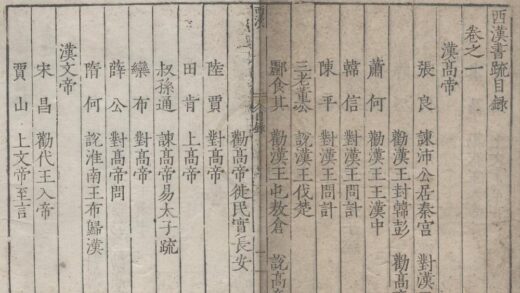 西漢書疏目録
卷之一
漢高帝
張良 諫沛公居秦宫 對漢
勸漢王封韓彭 勸高
蕭何 勸漢王王漢中
韓信 對漢王問計
陳平 對漢王問計
三老董公 說漢王伐楚
酈食其 勸漢王屯敖倉 說高
目録
勸高帝徙民實長安
陸賈 對高帝
田肯 上高帝
叔孫通 諫高帝易太子疏
欒布 對高帝
薛公 對高帝問
隋何 說淮南王布歸漢
漢文帝
宋昌 勸代王入帝
賈山 上文帝至言